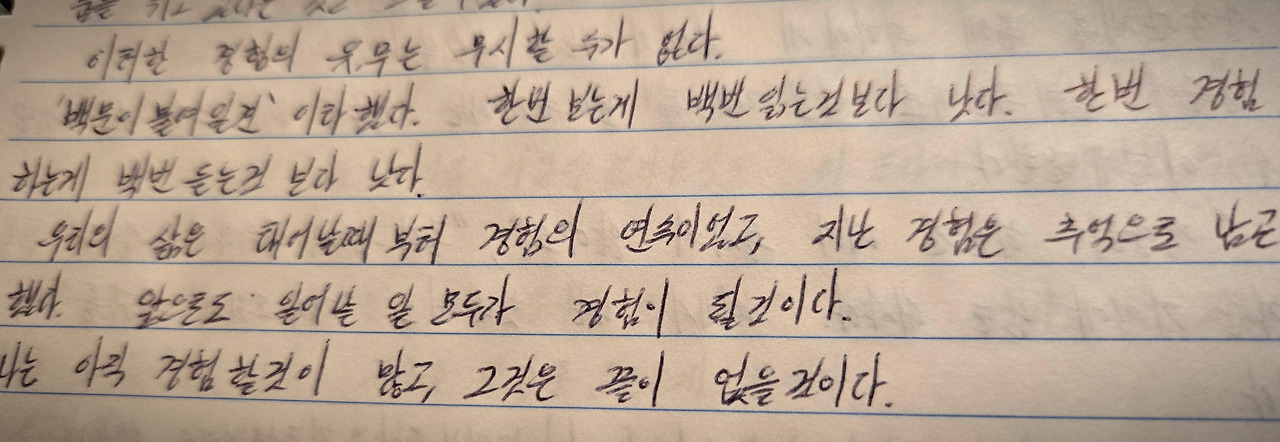 이러한 경험의 유무는 무시할 수가 없다.
'백문이 불여일견' 이라 했다. 한번 보는게 백번 읽는것 보다 낫다. 한번 경험
하는게 백번 듣는것 보다 낫다.
우리의 삶은 태어날때 부터 경험의 연속이었고, 지난 경험은 추억으로 남곤
했다. 앞으로도 일어날 일 모두가 경험이 될 것이다.
나는 아직 경험할것이 많고, 그것은 끝이 없을것이다.